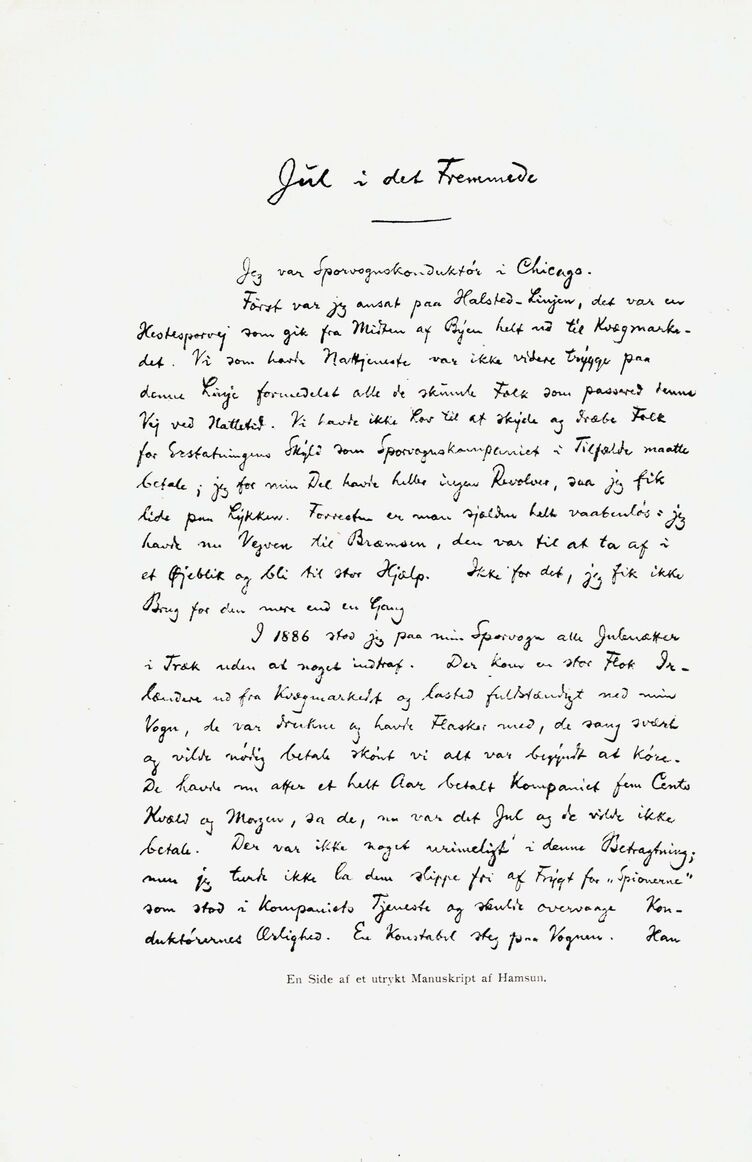 Jul i det Fremmede
Jeg var Sporvognskonduktør i Chicago.
Først var jeg ansat paa Halsted-Linjen, det var en
Hestesporvej som gik fra Midten af Byen helt ud til Kvægmarke-
det. Vi som havde Nattjeneste var ikke videre trygge paa
denne Linje formedelst alle de skumle Folk som passered denne
Vej ved Nattetid. Vi havde ikke Lov til at skyde og dræbe Folk
for Erstatningens Skyld som Sporvognskompaniet i Tilfælde maatte
betale; jeg for min Del havde heller ingen Revolver, saa jeg fik
lide paa Lykken. Forresten er man sjælden helt vaabenløs: jeg
havde nu Vejven til Bræmsen, den var til at ta af i
et Øjeblik og bli til stor Hjælp. Ikke for det, jeg fik ikke
Brug for den mere end en Gang
I 1886 stod jeg paa min Sporvogn alle Julenætter
i Træk uden at noget indtraf. Der kom en stor Flok Ir-
lændere ud fra Kvægmarkedet og lasted fuldstændigt ned min
Vogn, de var drukne og havde Flasker med, de sang svært
og vilde nødig betale skønt vi alt var begyndt at køre.
De havde nu atter et helt Aar betalt Kompaniet fem Cents
Kvæld og Morgen, sa de, nu var det Jul og de vilde ikke
betale. Der var ikke noget urimeligt i denne Betragtning;
men jeg turde ikke la dem slippe fri af Frygt for „Spionerne"
som stod i Kompaniets Tjeneste og skulde overvaage Kon-
duktørernes Ærlighed. En Konstabel steg paa Vognen. Han
En Side af et utrykt Manuskript af Hamsun.